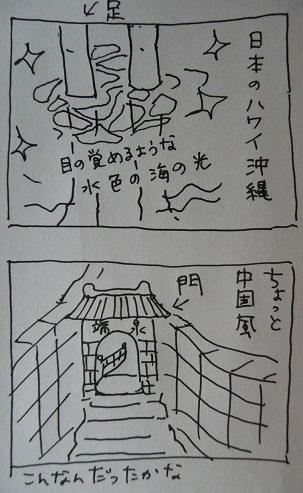 足
日本のハワイ沖縄
目の覚めるような
水色の海の光
ちょっと
中国風
門
端泉
こんなんだったかな